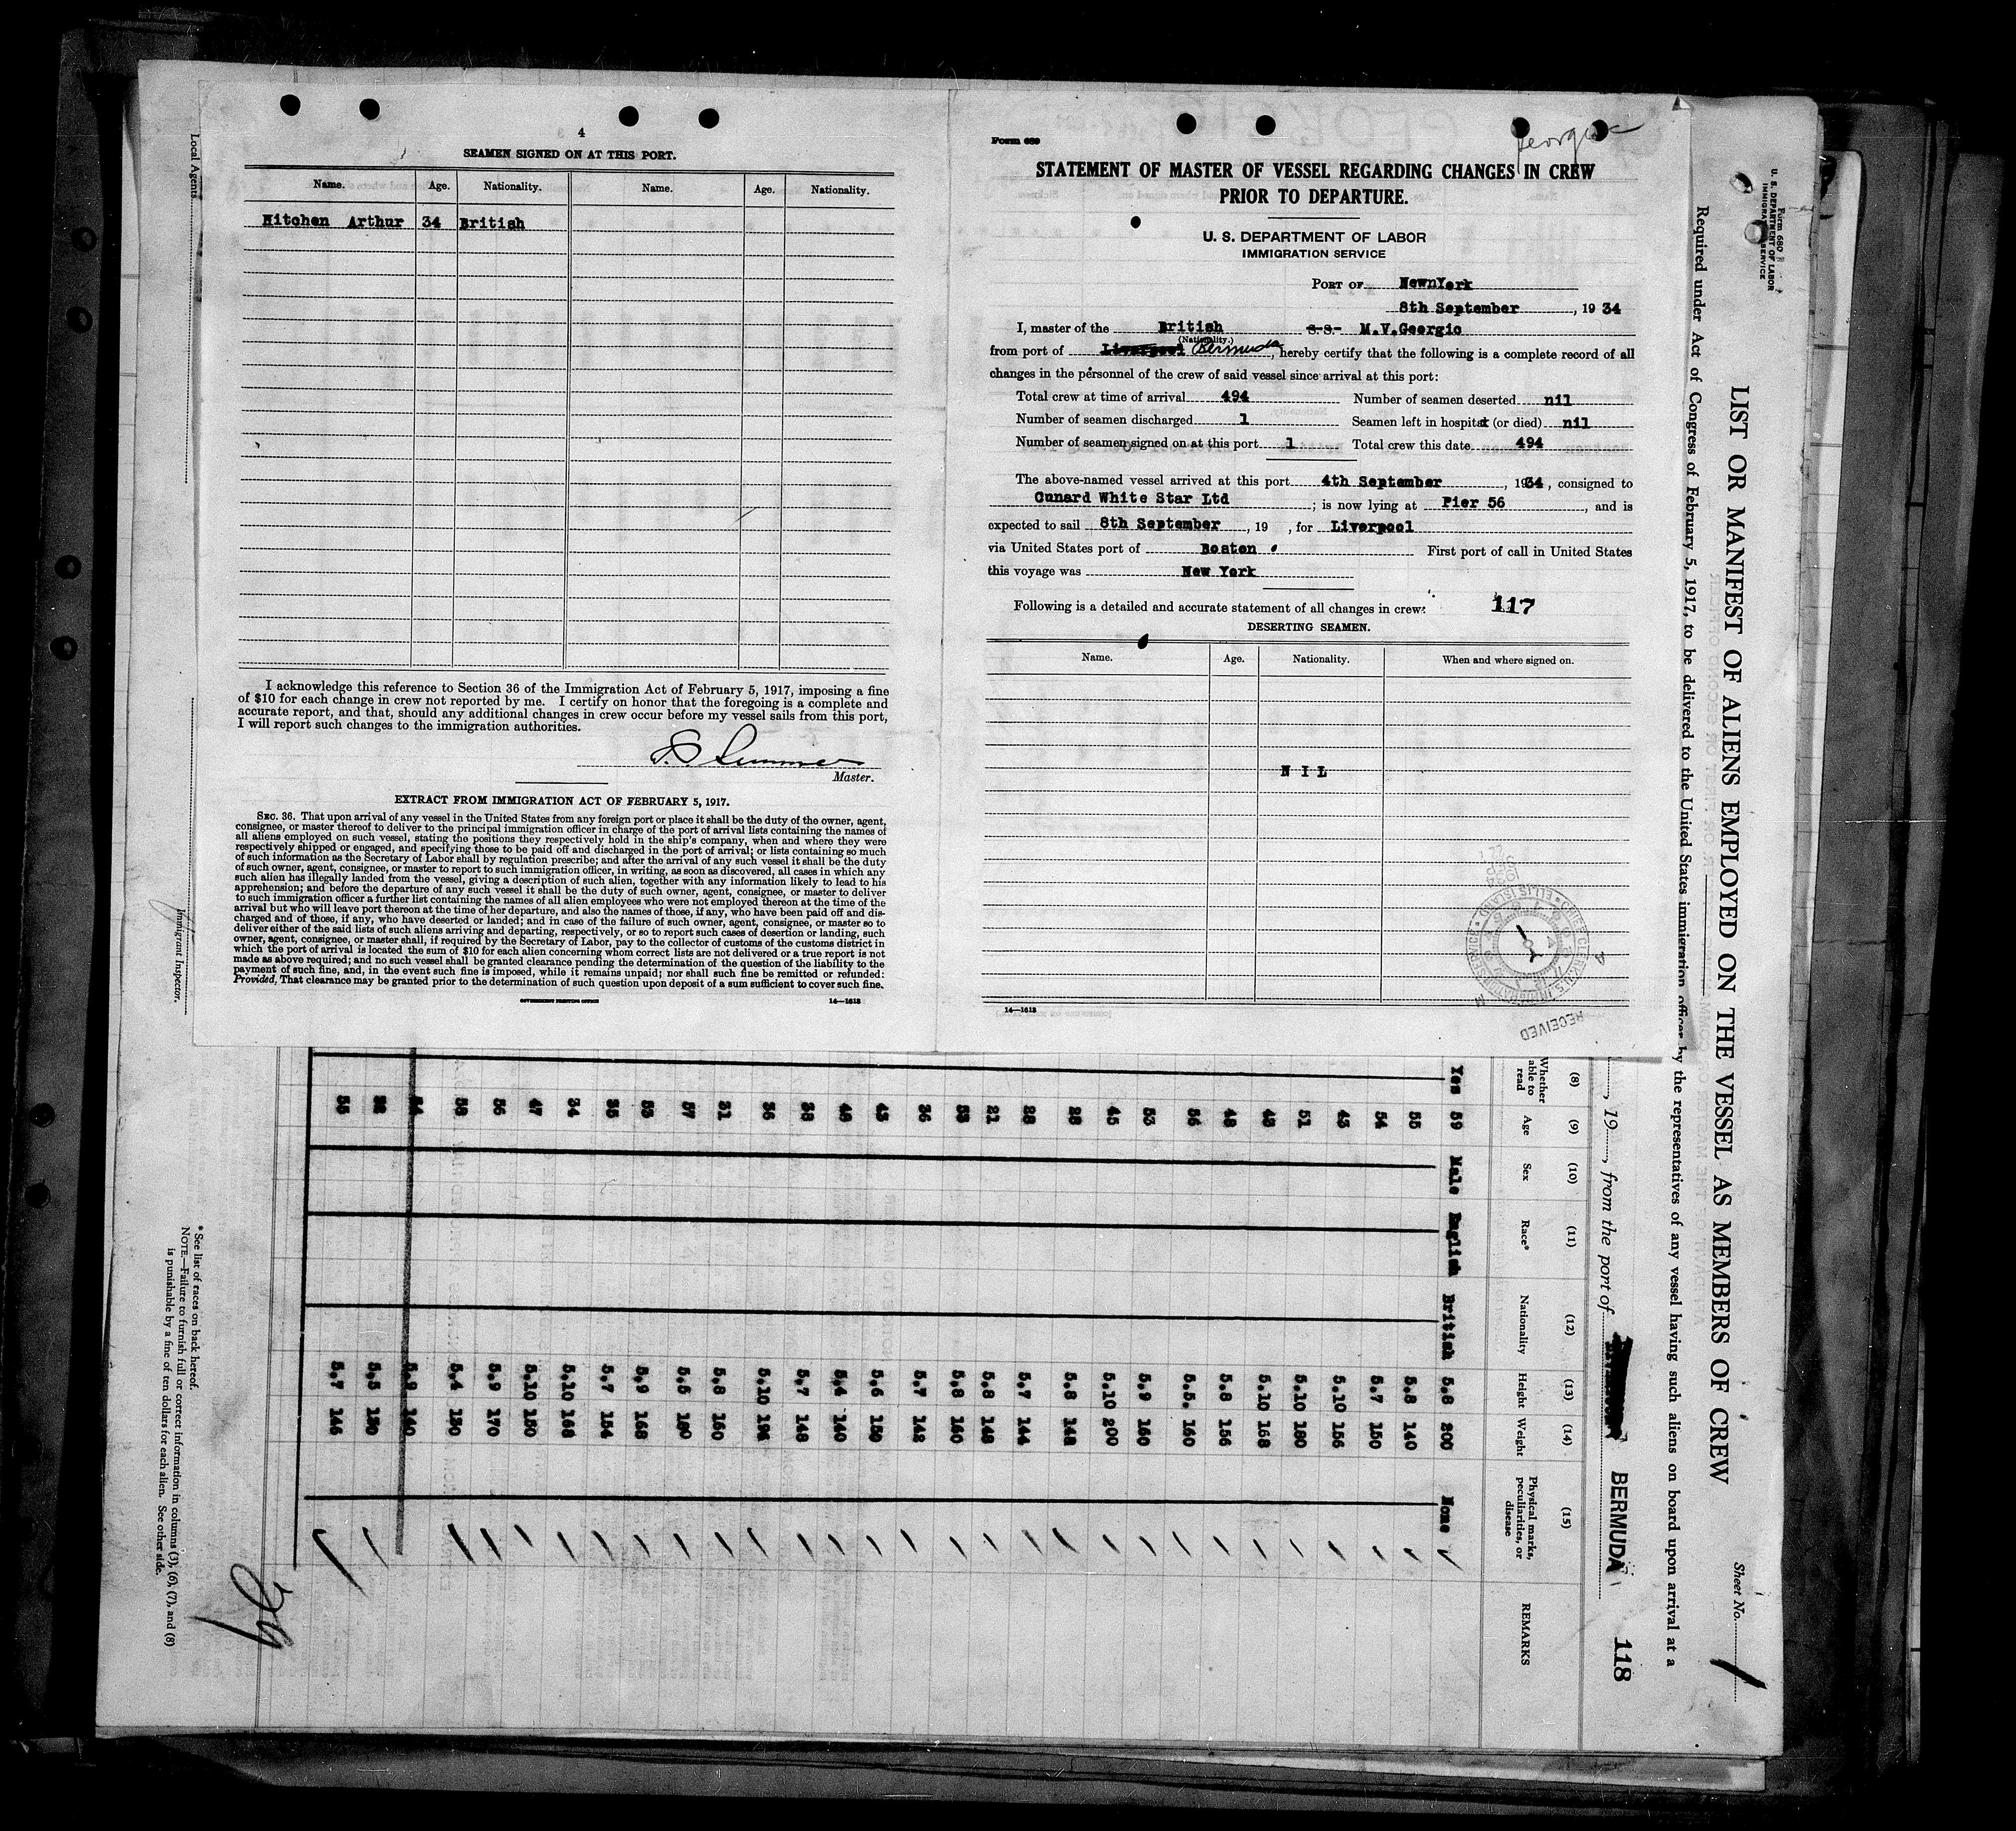 4
SEAMEN SIGNED ON AT THIS PORT.
Name. Age. Nationality. Name. Age. Nationality.
Hitchen Arthur 34 British
I acknowledge this reference to Section 36 of the Immigration Act of February 5, 1917, imposing a fine
of $10 for each change in crew not reported by me. I certify on honor that the foregoing is a complete and
accurate report, and that, should any additional changes in crew occur before my vessel sails from this port,
I will report such changes to the immigration authorities.
Master.
EXTRACT FROM IMMIGRATION ACT OF FEBRUARY 5, 1917.
SEC. 36. That upon arrival of any vessel in the United States from any foreign port or place it shall be the duty of the owner, agent,
consignee, or master thereof to deliver to the principal immigration officer in charge of the port of arrival lists containing the names of
all aliens employed on such vessel, stating the positions they respectively hold in the ship's company, when and where they were
respectively shipped or engaged, and specifying those to be paid off and discharged in the port of arrival; or lists containing so much
of such information as the Secretary of Labor shall by regulation prescribe; and after the arrival of any such vessel it shall be the duty
of such owner, agent, consignee, or master to report to such immigration officer, in writing, as soon as discovered, all cases in which any
such alien has illegally landed from the vessel, giving a description of such alien, together with any information likely to lead to his
apprehension; and before the departure of any such vessel it shall be the duty of such owner, agent, consignee, or master to deliver
to such immigration officer a further list containing the names of all alien employees who were not employed thereon at the time of the
arrival but who will leave port thereon at the time of her departure, and also the names of those, if any, who have been paid off and dis-
charged and of those, if any, who have deserted or landed; and in case of the failure of such owner, agent, consignee, or master so to
deliver either of the said lists of such aliens arriving and departing, respectively, or so to report such cases of desertion or landing, such
owner, agent, consignee, or master shall, if required by the Secretary of Labor, pay to the collector of customs of the customs district in
which the port of arrival is located the sum of $10 for each alien concerning whom correct lists are not delivered or a true report is not
made as above required; and no such vessel shall be granted clearance pending the determination of the question of the liability to the
payment of such fine, and, in the event such fine is imposed, while it remains unpaid; nor shall such fine be remitted or refunded:
Provided, That clearance may be granted prior to the determination of such question upon deposit of a sum sufficient to cover such fine.
GOVERNMENT PRINTING OFFICE 14—1613
Form 689
Georgic
STATEMENT OF MASTER OF VESSEL REGARDING CHANGES IN CREW
PRIOR TO DEPARTURE.
U. S. DEPARTMENT OF LABOR
IMMIGRATION SERVICE
PORT OF NewnYork
8th September, 1934
I, master of the British S.S. M.V.Georgic
(Nationality.)
from port of Liverpool Bermuda, hereby certify that the following is a complete record of all
changes in the personnel of the crew of said vessel since arrival at this port:
Total crew at time of arrival 494 Number of seamen deserted nil
Number of seamen discharged 1 Seamen left in hospital (or died) nil
Number of seamen signed on at this port 1 Total crew this date 494
The above-named vessel arrived at this port 4th September, 1934, consigned to
Cunard White Star Ltd; is now lying at Pier 56, and is
expected to sail 8th September, 19 , for Liverpool
via United States port of Boston. First port of call in United States
this voyage was New York
Following is a detailed and accurate statement of all changes in crew: 117
DESERTING SEAMEN.
Name. Age. Nationality. When and where signed on.
N I L
CHIEF CLERK U.S. IMMIGRATION SERVICE ELLIS ISLAND
RECEIVED
14—1613
Local Agents
Immigrant Inspector.
Form 680
U. S. DEPARTMENT OF LABOR
IMMIGRATION SERVICE
Sheet No.
LIST OR MANIFEST OF ALIENS EMPLOYED ON THE VESSEL AS MEMBERS OF CREW
Required under Act of Congress of February 5, 1917, to be delivered to the United States immigration officer by the representatives of any vessel having such aliens on board upon arrival at a
, 19 , from the port of BERMUDA 118
(8) (9) (10) (11) (12) (13) (14) (15)
Whether able to read Age Sex Race* Nationality Height Weight Physical marks, peculiarities, or disease REMARKS
Yes 59 Male English British 5.8 200 None
55 5.8 140
54 5.7 150
43 5.10 156
51 5.10 180
48 5.10 168
48 5.8 156
56 5.5. 160
53 5.9 160
45 5.10 200
28 5.8 148
28 5.7 144
21 5.8 148
5.8 160
36 5.7 142
43 5.6 150
5.4 140
38 5.7 148
36 5.10
31 5.8 160
37 5.5
5.9 168
5.7 154
34 5.10 168
47 5.10 150
36 5.9 170
5.4 130
5.9 140
5.5 150
55 5.7 146
* See list of races on back hereof.
NOTE.—Failure to furnish full or correct information in columns (3), (6), (7), and (8)
is punishable by a fine of ten dollars for each alien. See other side.